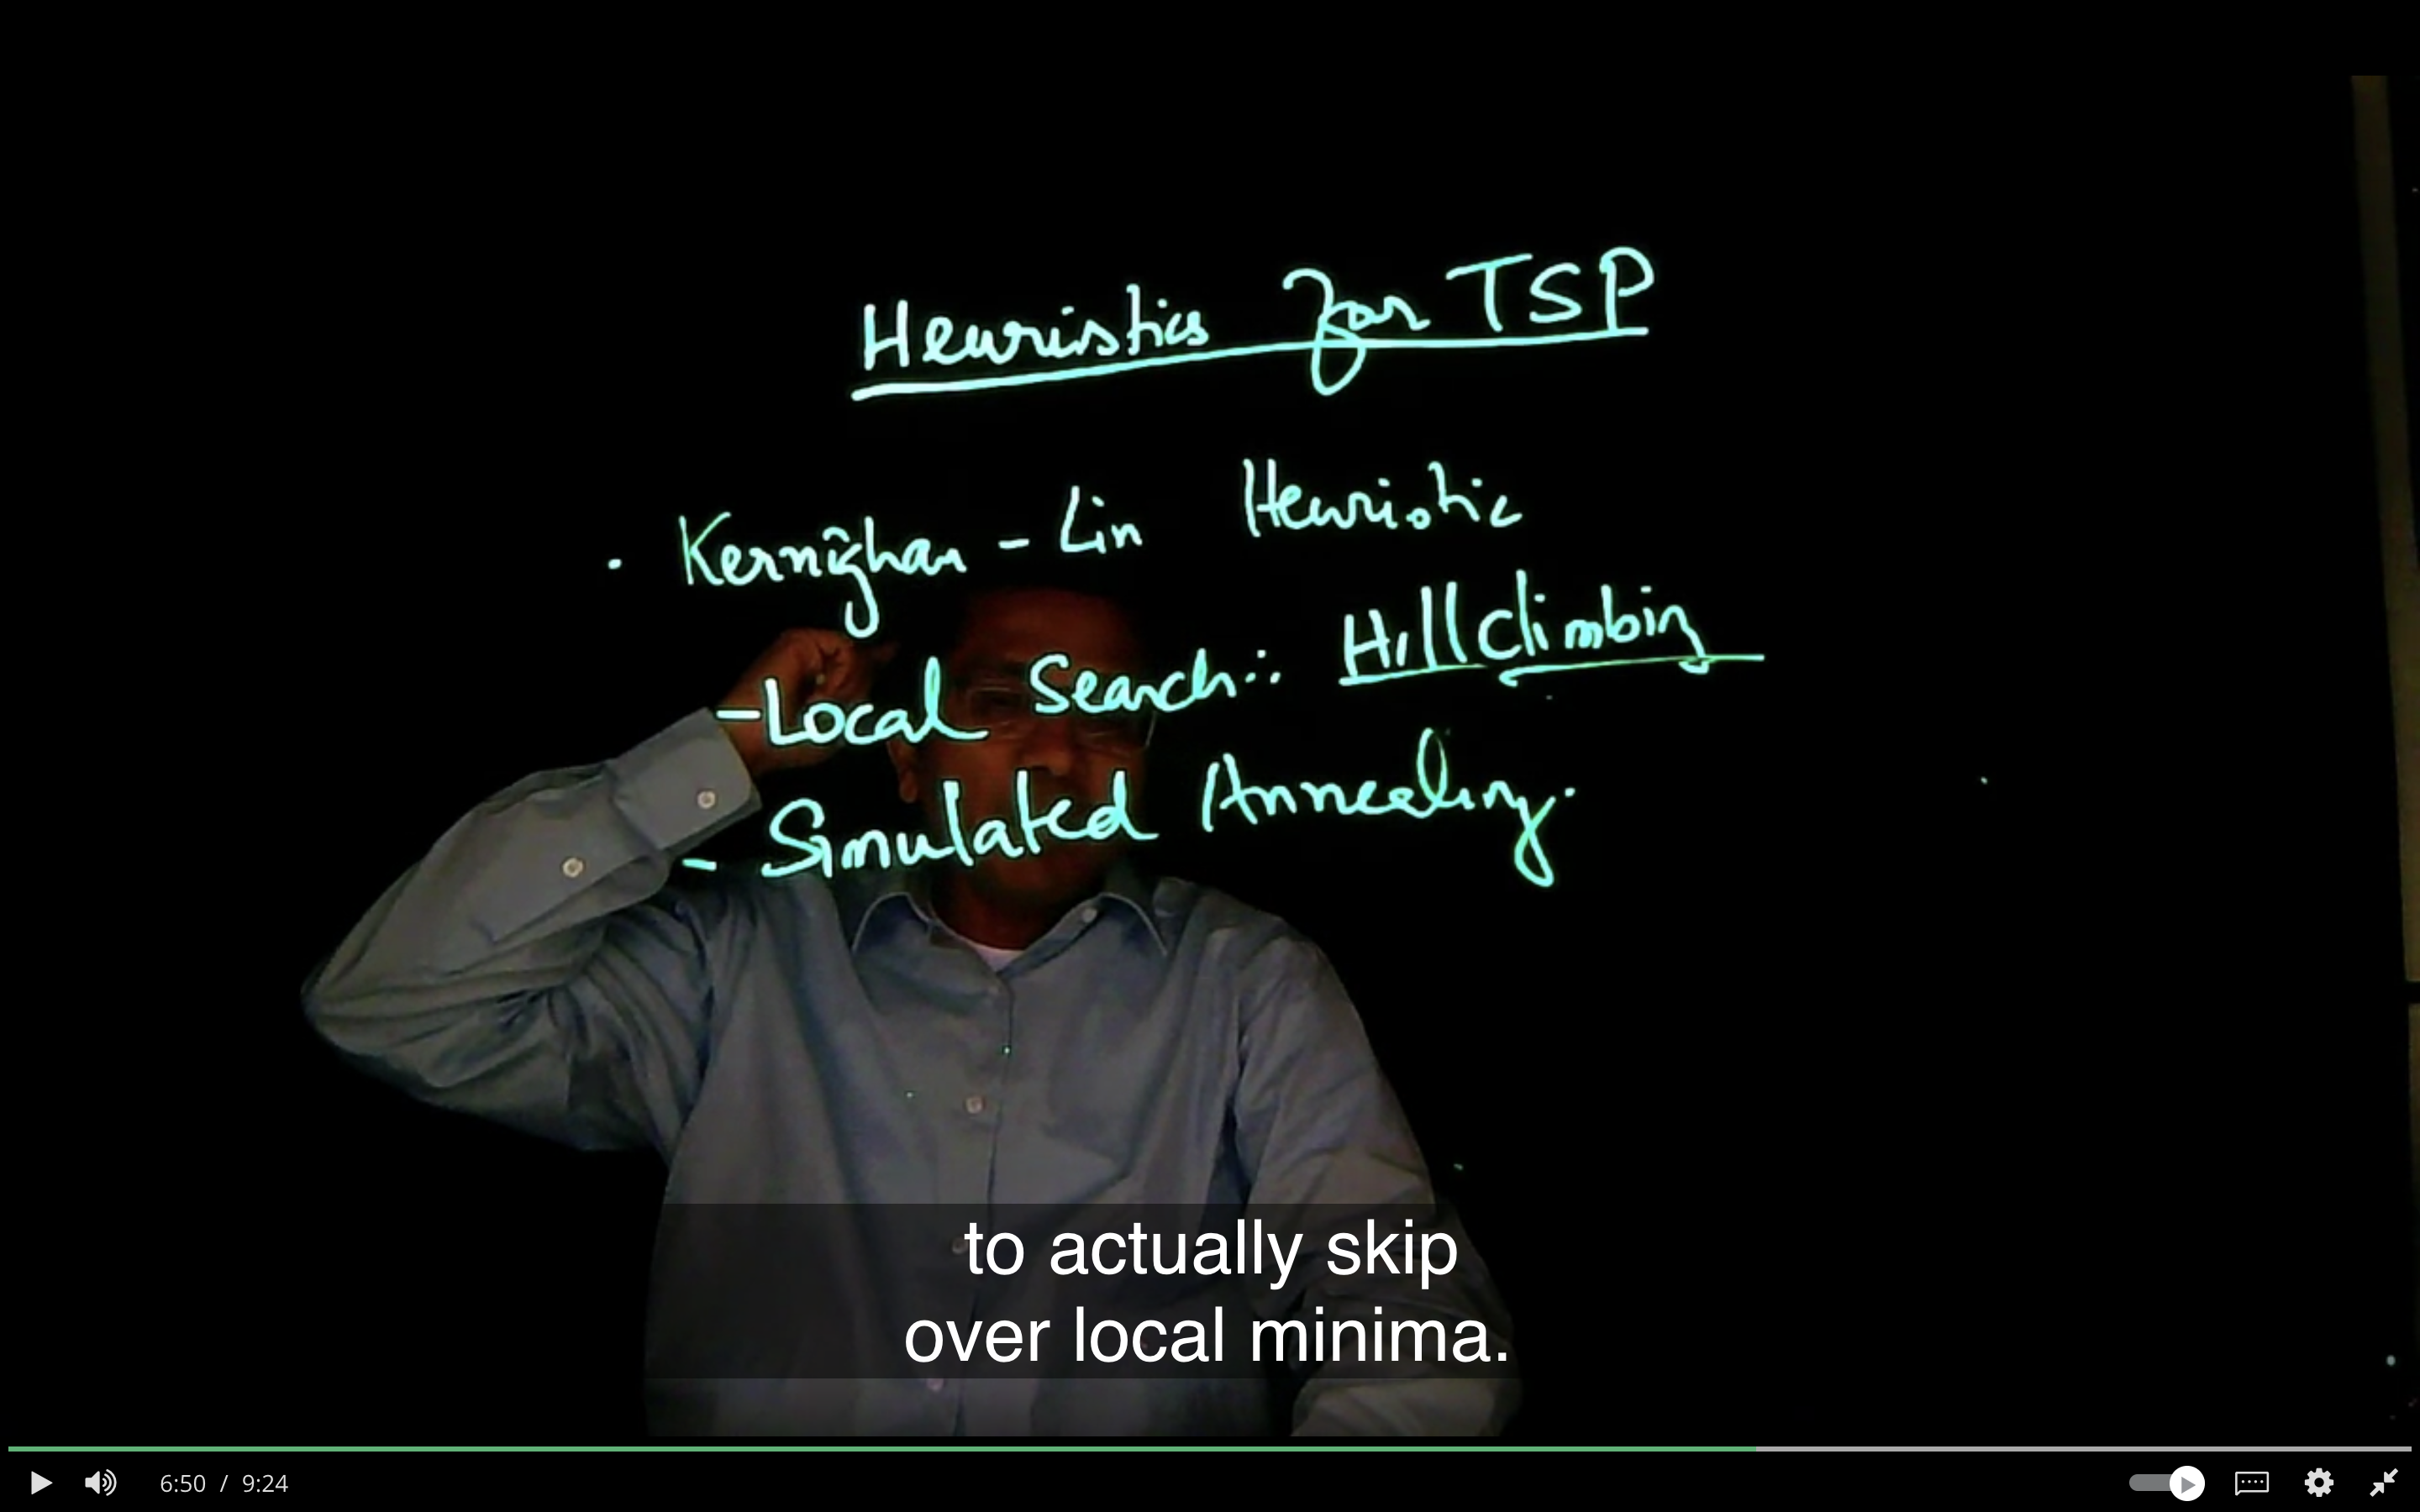 Heuristics for TSP
· Kernighan - Lin Heuristic
- Local Search: Hill Climbing
- Simulated Annealing.
to actually skip
over local minima.
6:50 / 9:24